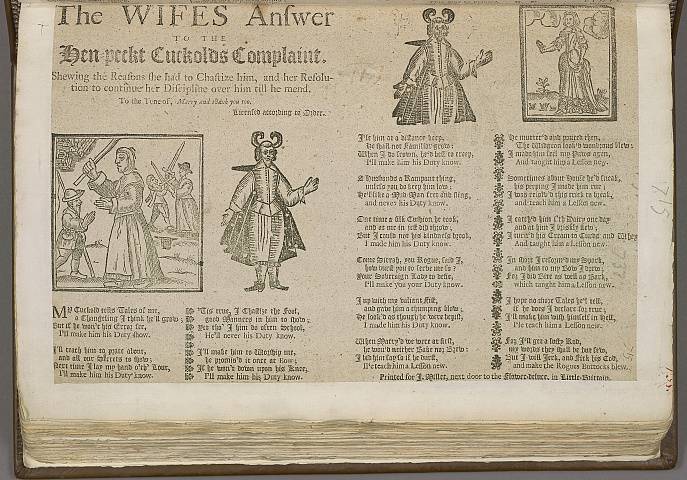 The WIFES Answer
TO THE
Hen-peckt Cuckolds Complaint.
Shewing the Reasons she had to Chastize him, and her Resolu-
tion to continue her Discipline over him till he mend.
To the Tune of, Marry and thank you too.
Licensed according to Order.
MY Cuckold tells Tales of me,
a Changeling I think he'll grow;
But if he won't his Error see,
I'll make him his Duty know.
I'll teach him to prate abroad,
and all our Secrets to show;
Next time I lay my hand o'th' Lour,
I'll make him his Duty know.
'Tis true, I Chastize the Fool,
good Manners in him to show;
Yet tho' I him do often School,
He'll never his Duty know.
I'll make him to Worship me,
he promis'd it once at Bow;
If he won't down upon his Knee,
I'll make him his Duty know.
I'le him at a distance keep,
He shall not Familiar grow;
When I do frown, he'd best to creep,
I'll make him his Duty know.
A Husbands a Rampant thing,
unless you do keep him low;
He'll like a Mad-Man fret and fling,
and never his Duty know.
One time a Silk Cushion he took,
and at me in jest did throw;
But I could not his kindness brook,
I made him his Duty know.
Come Sirrah, you Rogue, said I,
how durst you to serve me so?
Your Sovereign Lady to defie,
I'll make you your Duty know.
I up with my valiant Fist,
and gave him a thumping blow;
He look'd as though he were bepist,
I made him his Duty know.
When Marry'd we were at first,
he would neither Bake nor Brew;
I bid him say so if he durst,
I'le teach him a Lesson new.
He mutter'd and pouted then,
The Widgeon look'd wondrous blew;
I made him feel my Paws agen,
And taught him a Lesson new.
Sometimes about House he'd sneak,
his peeping I made him rue;
I was resolv'd this trick to break,
and teach him a Lesson new.
I catch'd him i'th Dairy one day
and at him I briskly flew;
And taught him a Lesson new.
In short I reform'd my Spark,
and him to my Bow I drew;
For I did Bite as well as Bark,
which taught him a Lesson new.
I hope no more Tales he'll tell,
if he does I declare for true;
I'll make him wish himself in Hell,
I'le teach him a Lesson new.
For I'll get a lusty Rod,
my words they shall be but few,
But I will Jirk, and
and make the Rogues Buttocks blew.
Printed for J. Millet, next door to the Flower-deluce, in Little-Brittain.
215